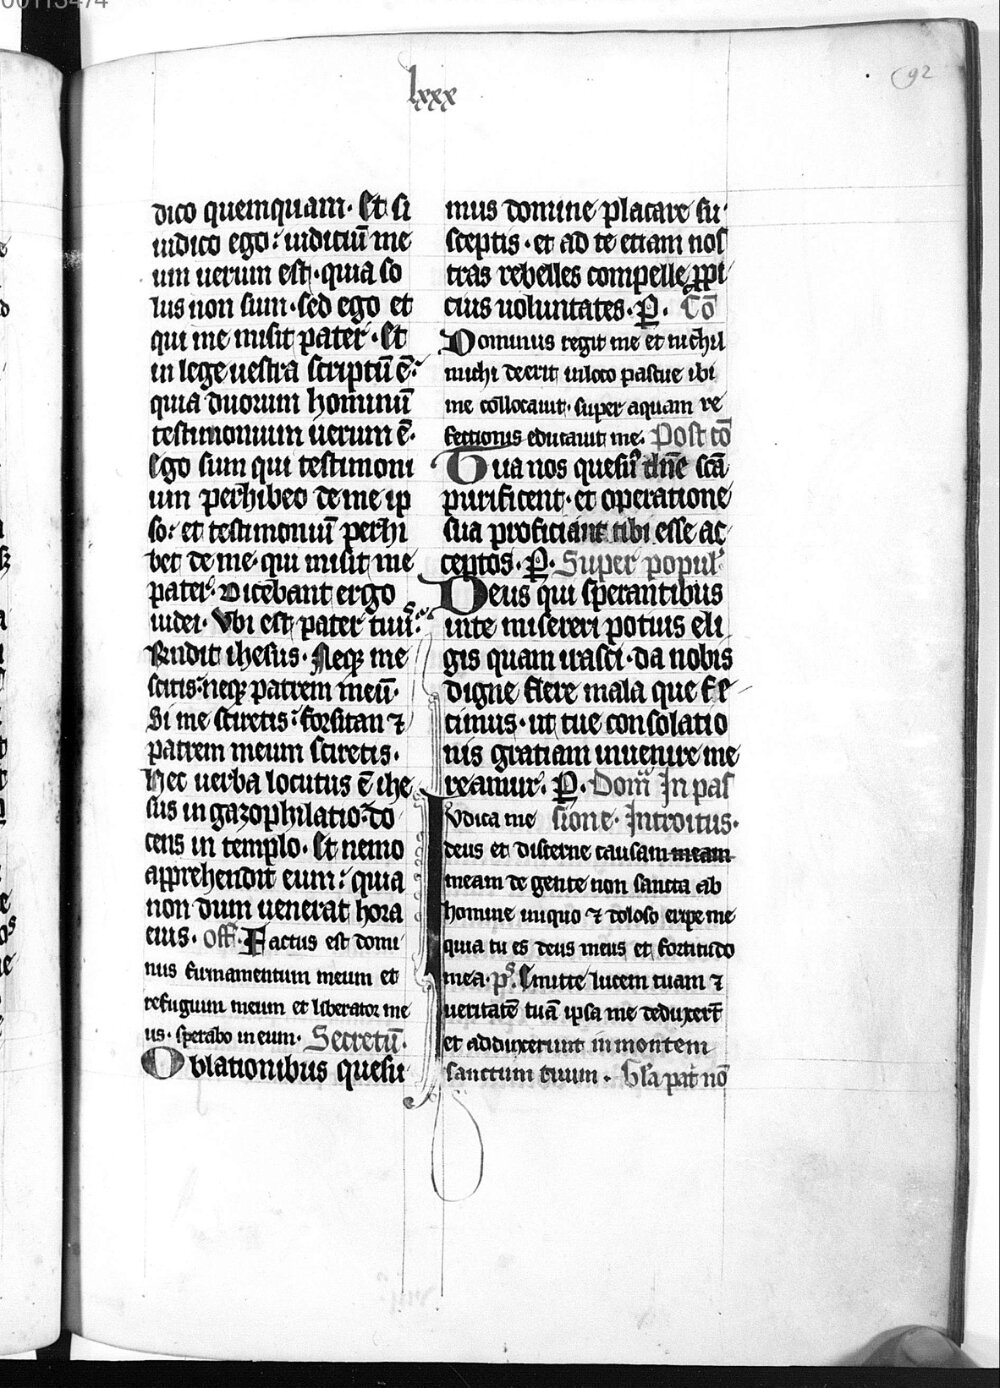 00113474
lxxx
92
dico quemquam· Et si
iudico ego: iudiciū me
um uerum est· quia so
lus non sum· sed ego et
qui me misit pater· Et
in lege uestra scriptū ē:
quia duorum hominū
testimonium uerum ē·
Ego sum qui testimoni
um perhibeo de me ip
so: et testimoniū perhi
bet de me· qui misit me
pater· Dicebant ergo
iudei· Vbi est pater tuus:
Rndit ihesus· Neqꝫ me
scitis: neqꝫ patrem meū·
Si me sciretis: forsitan ⁊
patrem meum sciretis·
Hec uerba locutus ē ihe
sus in gazophilatio: do
cens in templo· Et nemo
apprehendit eum: quia
non dum uenerat hora
eius· Off· Factus est domi
nus firmamentum meum et
refugium meum et liberator me
us· sperabo in eum· Secretū·
Oblationibus quesu
mus domine placare su
sceptis· et ad te etiam nos
tras rebelles compelle ꝓpi
cius uoluntates· P· Cō
Dominus regit me et nichil
michi deerit in loco pascue ibi
me collocauit· super aquam re
fectionis educauit me· Post cō
Tua nos quesu dn̄e scā
purificent· et operatione
sua proficiant tibi esse ac
ceptos· P· Super popul
Deus qui sperantibus
in te misereri potius eli
gis quam irasci· da nobis
digne flere mala que fe
cimus· ut tue consolatio
nis gratiam inuenire me
reamur· P· Dom̄ In pas
Iudica me sione· Introitus·
deus et discerne causam meam
meam de gente non sancta ab
homine iniquo ⁊ doloso eripe me
quia tu es deus meus et fortitudo
mea· pˢ· Emitte lucem tuam ⁊
ueritatē tuā ipsa me deduxert̄
et adduxerunt in montem
sanctum tuum· Gl̄a pat̄ nō